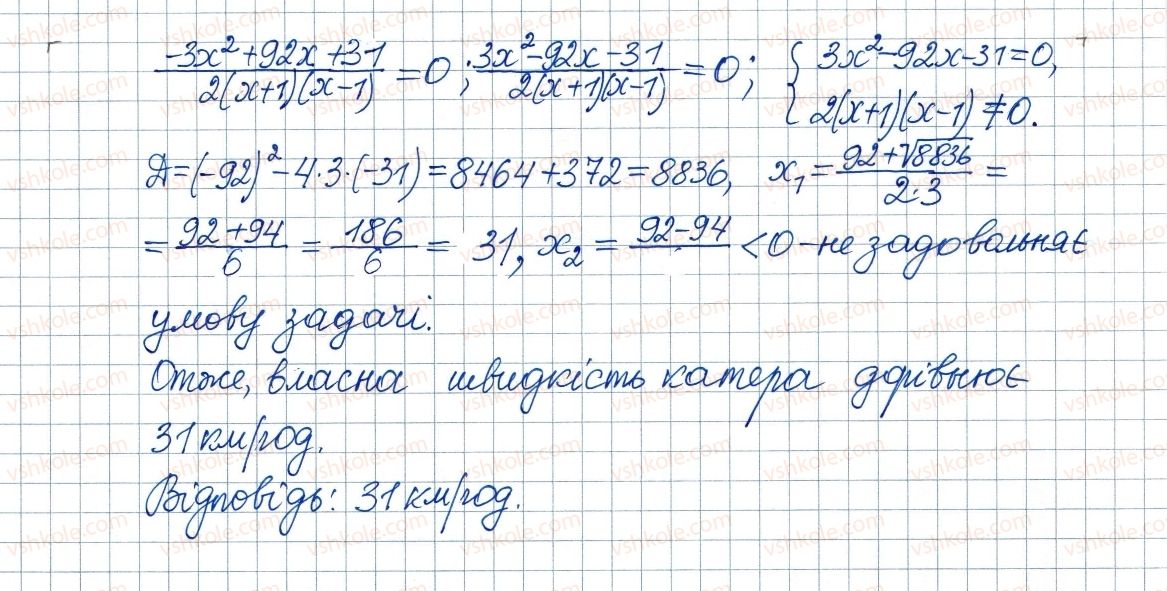 (-3x²+92x+31)/(2(x+1)(x-1)) = 0; (3x²-92x-31)/(2(x+1)(x-1)) = 0; { 3x²-92x-31=0, 2(x+1)(x-1) ≠ 0.
Д=(-92)²-4·3·(-31)=8464+372=8836, x₁ = (92+√8836)/(2·3) =
= (92+94)/6 = 186/6 = 31, x₂ = (92-94)/ <0 -не задовольняє
умову задачі.
Отже, власна швидкість катера дорівнює
31 км/год.
Відповідь: 31 км/год.